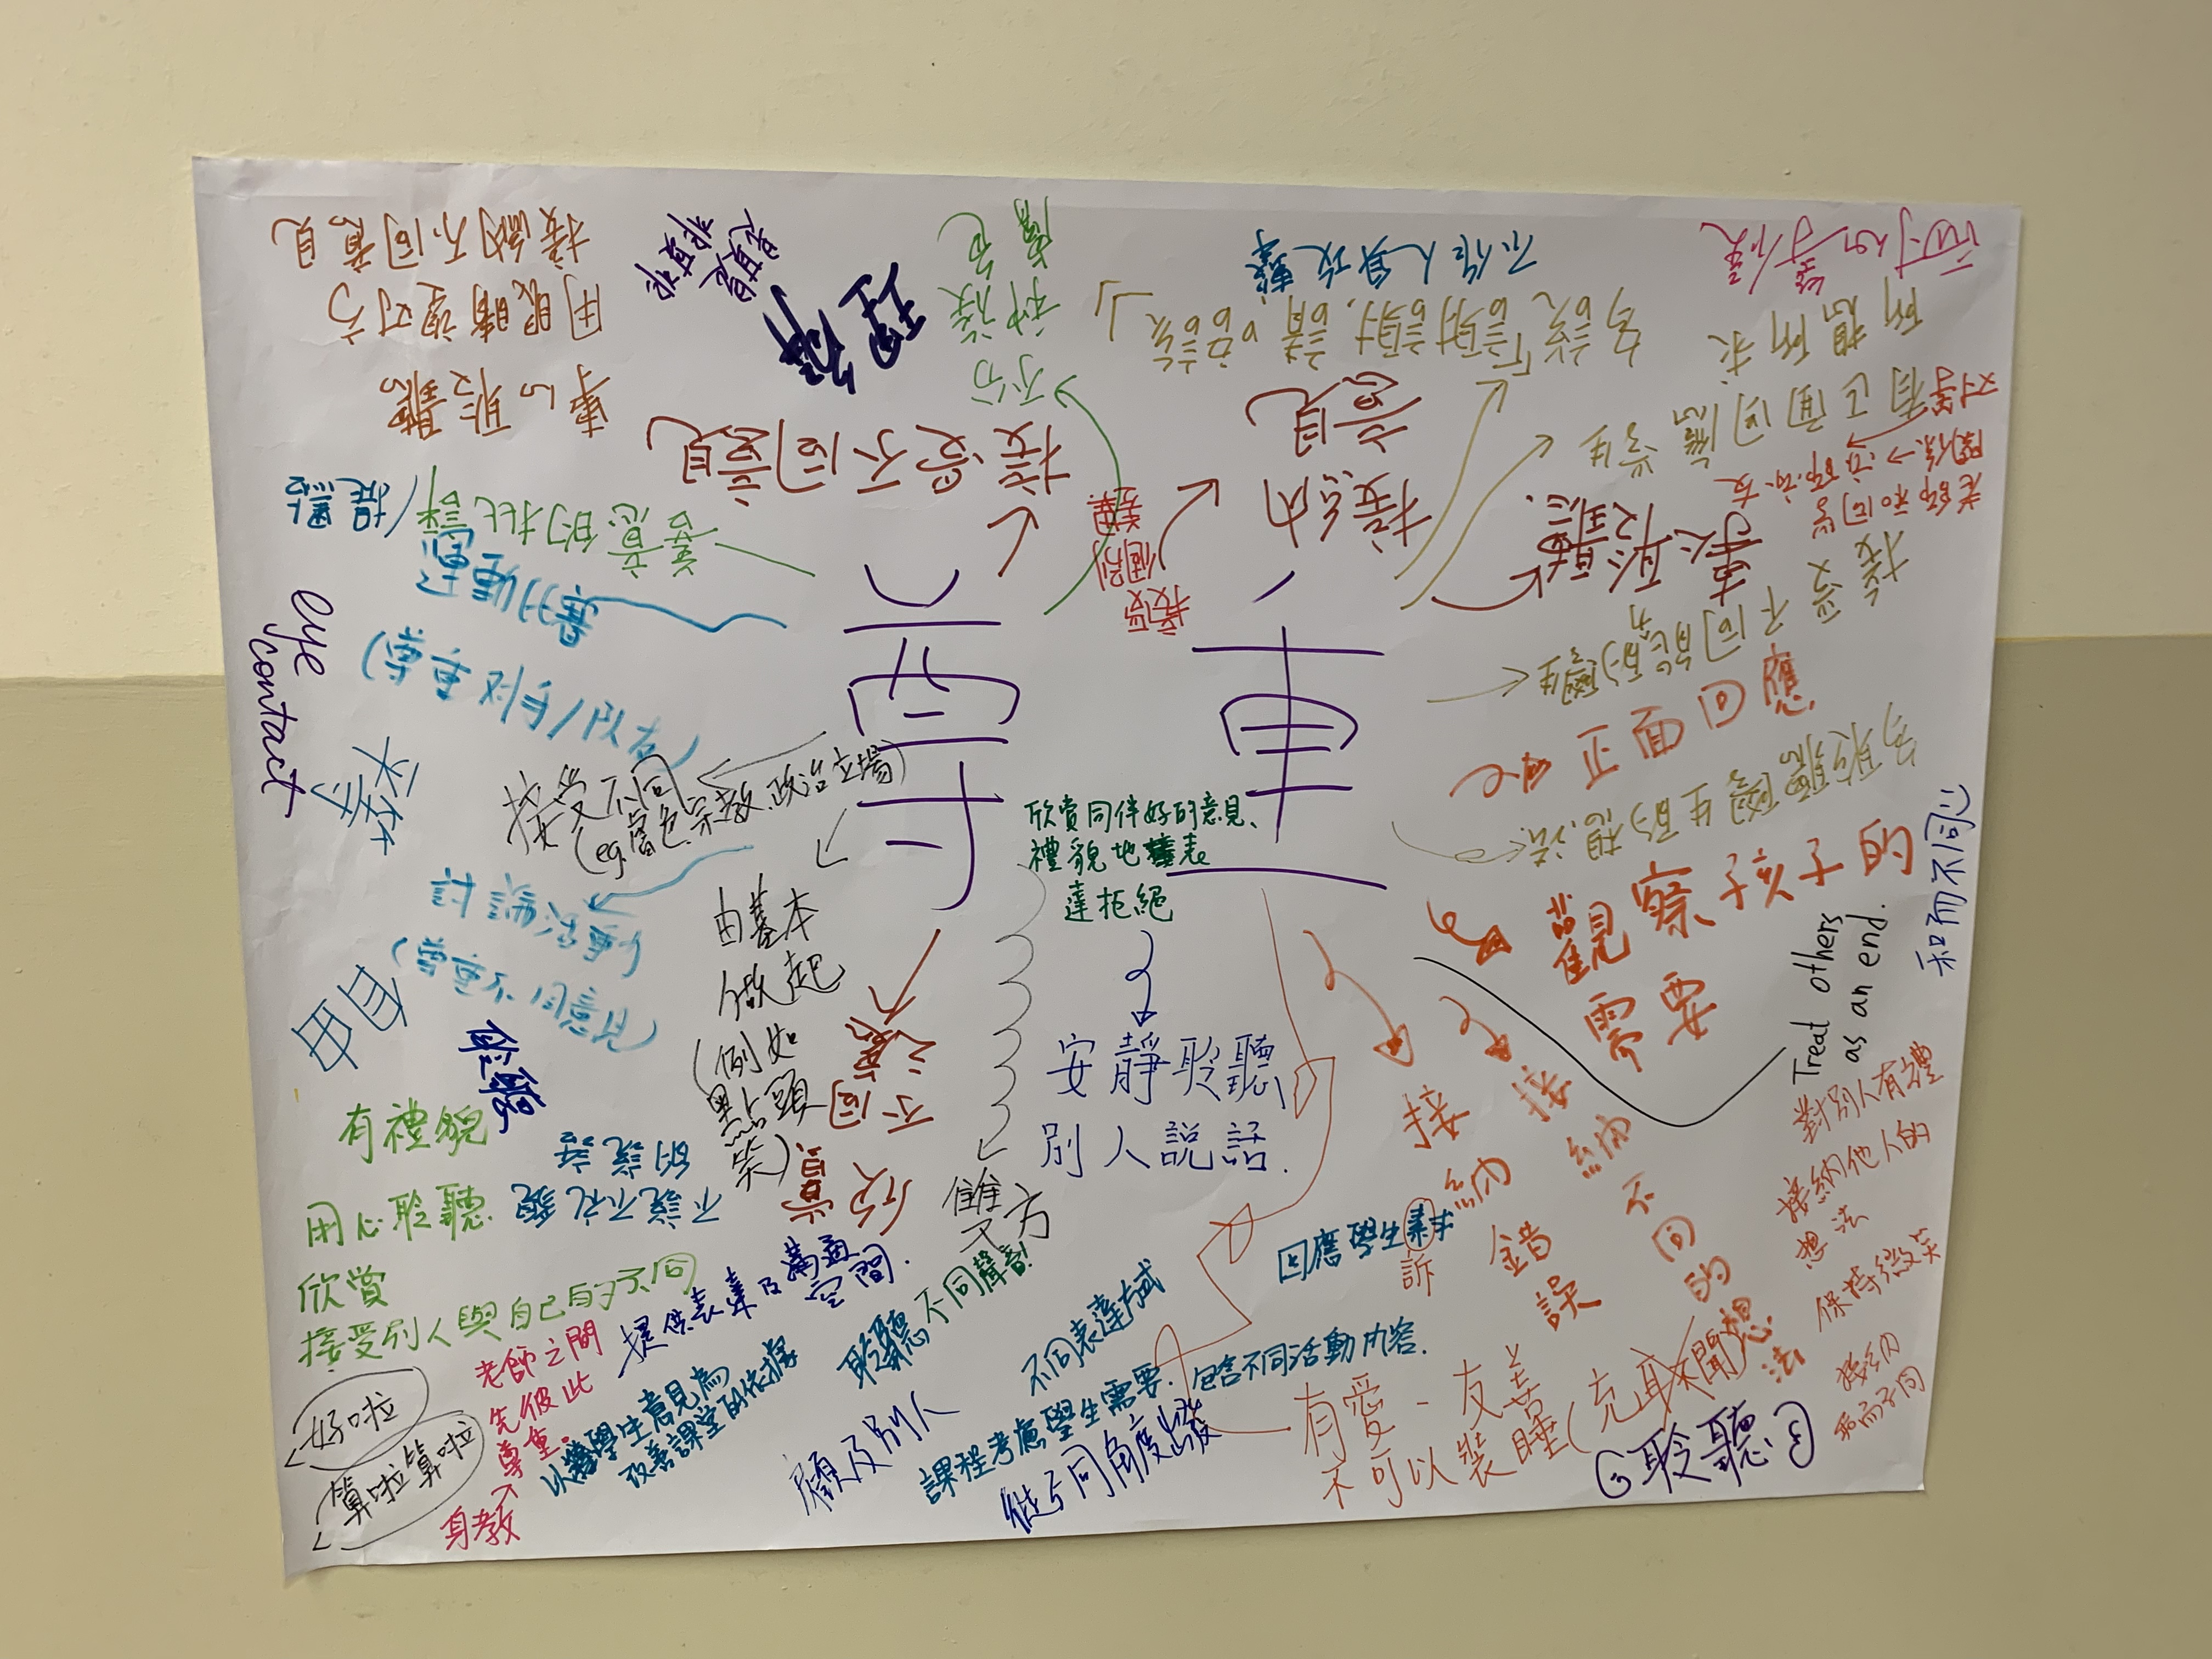 尊重
接納不同意見
用眼睛望对方
專心聆聽
善意的批評/提點
eye
contact
(友队/手队重尊)
平等
接受不同
(eg.膚色.宗教.政治立場)
自由
有禮貌
用心聆聽
欣賞
接受別人與自己的不同
好啦
算啦算啦
老師之間
先彼此
尊重.
身教
由基本
做起
(例如
點頭
笑)
不說不礼貌
的說話
欣賞
不同
提供表達及溝通
空間.
學生意見為
改善課堂的依據
理解
是其是
非其非
接受不同意見
不分
種族
膚色
接受
個別
差異
接納
意見
不作人身攻擊
多說「謝謝, 請, 早晨」
所想所求
專心聆聽
老師和同學
接受
不同能力
的學生
正面回應
多聆聽學生的想法
觀察孩子的
需要
和而不同
Treat others
as an end.
欣賞同伴好的意見、
禮貌地表
達拒絕
安靜聆聽
別人說話.
雙方
聆聽不同聲音!
顧及別人
不同表達方式
課程考慮學生需要. 包含不同活動內容.
從不同角度出發
回應學生
訴
接納
錯誤
接納不同的想法
有愛-友善
不可以裝睡(充耳不聞)
聆聽
對別人有禮
接納他人的
想法
保持微笑
接納
和而不同